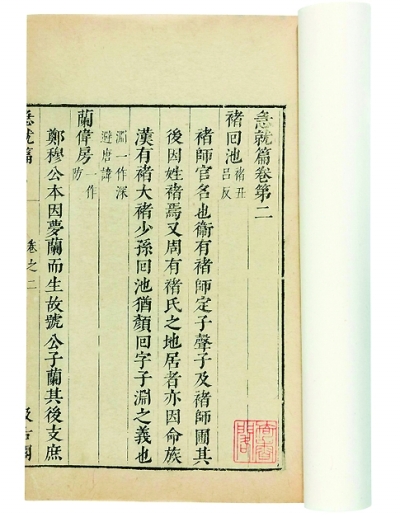 急就篇卷第二
褚回池 褚丑吕反
褚師官名也衛有褚師定子聲子及褚師圃其
後因姓褚焉又周有褚氏之地居者亦因命族
漢有褚大褚少孫回池猶顏回字子淵之義也
淵一作深避唐諱
蘭偉房 一作防
鄭穆公本因夢蘭而生故號公子蘭其後支庶
急就篇 卷之二 汲古閣